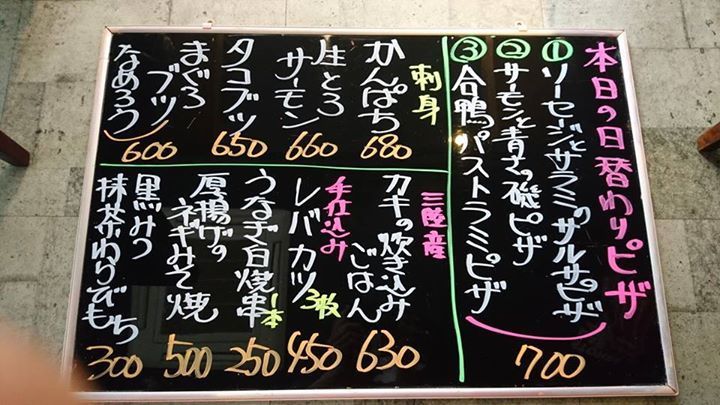 本日の日替わりピザ
①ソーセージとサラミのサルサピザ
②サーモンと青さの磯ピザ
③合鴨パストラミピザ
700
刺身
かんぱち
680
生とろサーモン
660
タコブツ
650
まぐろブツ
なめろう
600
三陸産
カキの炊き込みごはん
630
手仕込み
レバカツ
3枚
450
うなぎ白焼串
1本
250
厚揚げのネギみそ焼
500
黒みつ
抹茶わらびもち
300